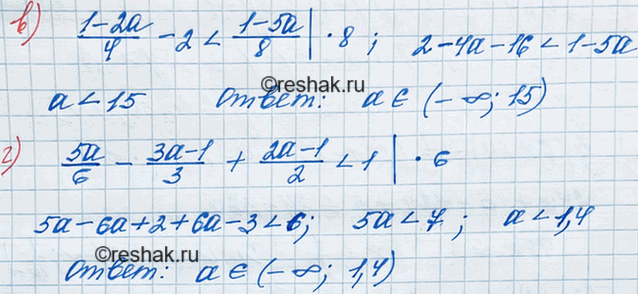 в) (1-2a)/4 - 2 < (1-5a)/8 | · 8 ; 2-4a-16 < 1-5a
©reshak.ru
a < 15 Ответ: a ∈ (-∞; 15)
г) 5a/6 - (3a-1)/3 + (2a-1)/2 < 1 | · 6
5a-6a+2+6a-3 < 6; 5a < 7 ; a < 1,4
©reshak.ru
Ответ: a ∈ (-∞; 1,4)